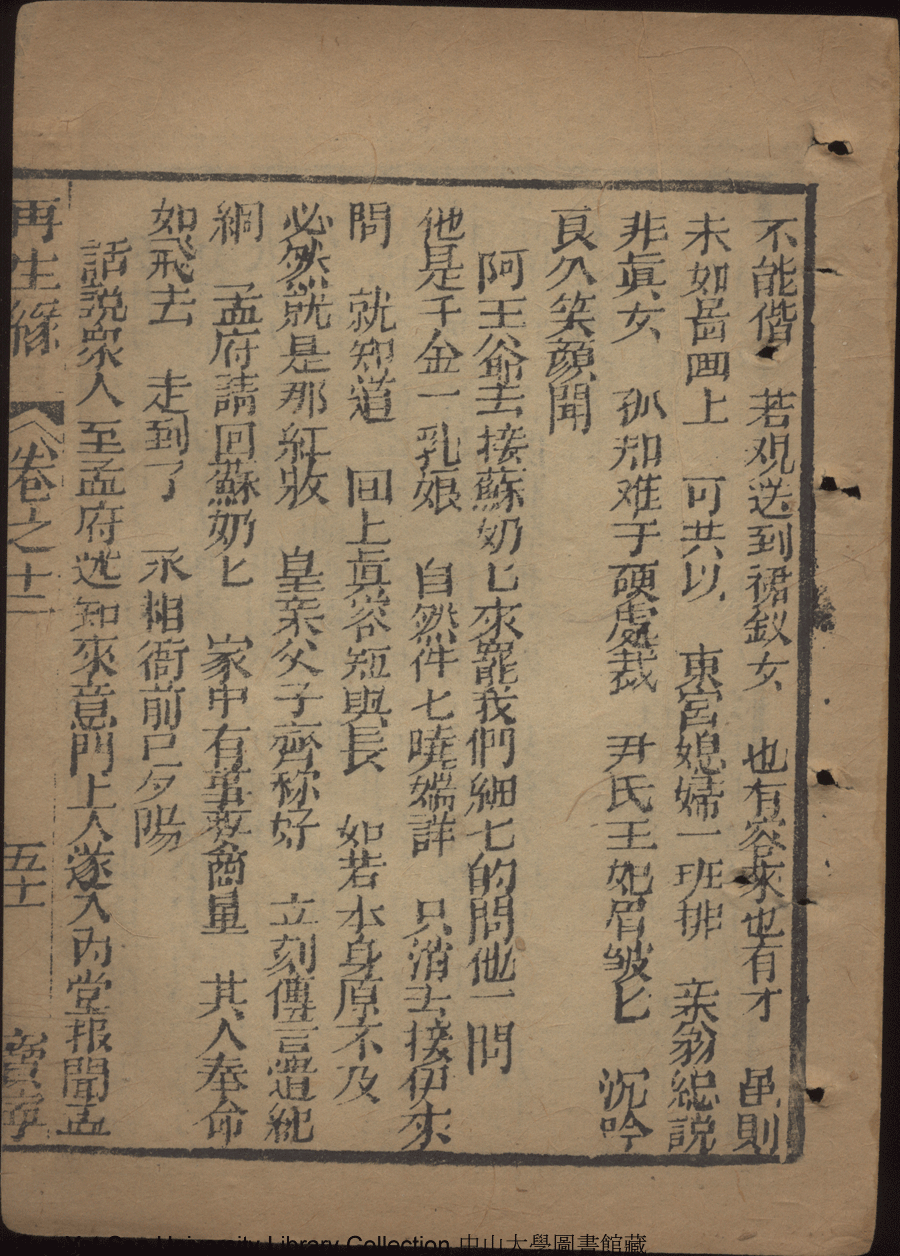 不能偕　若观送到裙釵女　也有容來也有才　虽则
未如畱画上　可共以　東宮媳婦一班排　亲翁総説
非眞女　孤知难于硬處裁　尹氏王妃眉皱匕　沉吟
良久笑顔開
阿王爷去接蘇奶匕來罷我們細七的問他一問
他是千金一乳娘　自然件七曉端詳　只消去接伊來
問　就知道　回上眞容短與長　如若本身原不及
必然就是那紅妝　皇亲父子齊称好　立刻傳言遣紀
綱　孟府請回蘇奶匕　家中有事敘啇量　其人奉命
如飛去　走到了　丞相衙前已夕陽
話説衆人至孟府述知來意門上人遂入內堂报聞孟
再生緣　卷之十二　五十　寳寧
Sun University Library Collection 中山大學圖書館藏